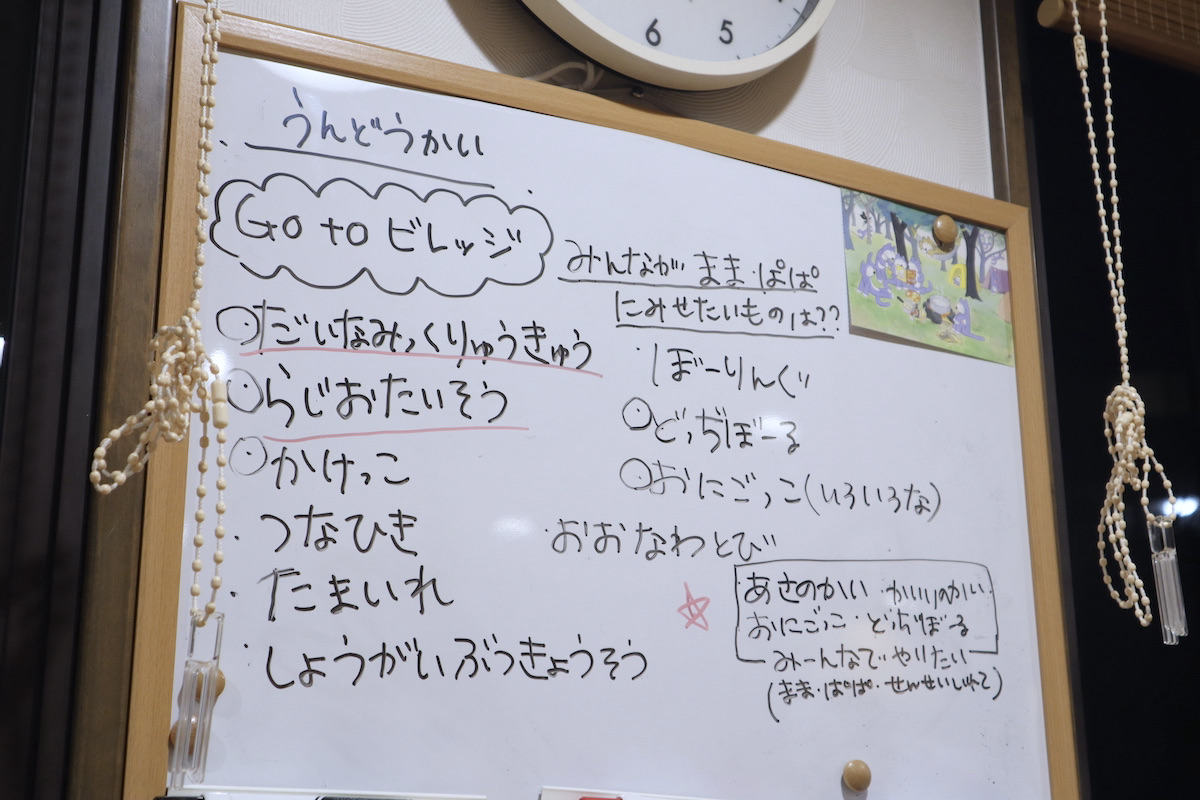 6 5
・うんどうかい・
Go to ビレッジ
○だいなみっくりゅうきゅう
○らじおたいそう
○かけっこ
・つなひき
・たまいれ
・しょうがいぶつきょうそう
みんなが まま・ぱぱ
にみせたいものは??
・ぼーりんぐ
○どっぢぼーる
○おにごっこ(いろいろな)
・おおなわとび
☆
・あさのかい ・かいりのかい
おにごっこ・どっぢぼーる
みーんなで やりたい
(まま・ぱぱ・せんせいいれて)